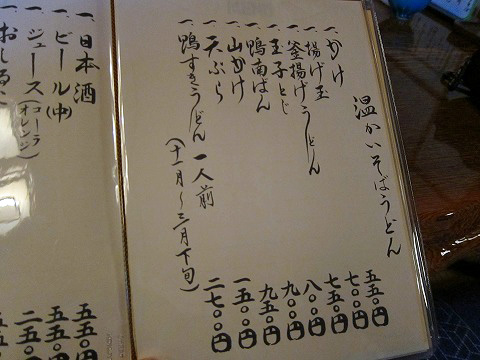 温かいそばうどん
一、かけ 五五〇円
一、揚げ玉 七〇〇円
一、釜揚げうどん 七五〇円
一、玉子とじ 八〇〇円
一、鴨南ばん 九〇〇円
一、山かけ 九五〇円
一、天ぷら 一五〇〇円
一、鴨すきうどん 一人前 二七〇〇円
(十一月〜三月下旬)
一、日本酒 五五〇円
一、ビール(中) 五五〇円
一、ジュース(コーラ オレンジ) 二五〇
一、おしるこ 五五